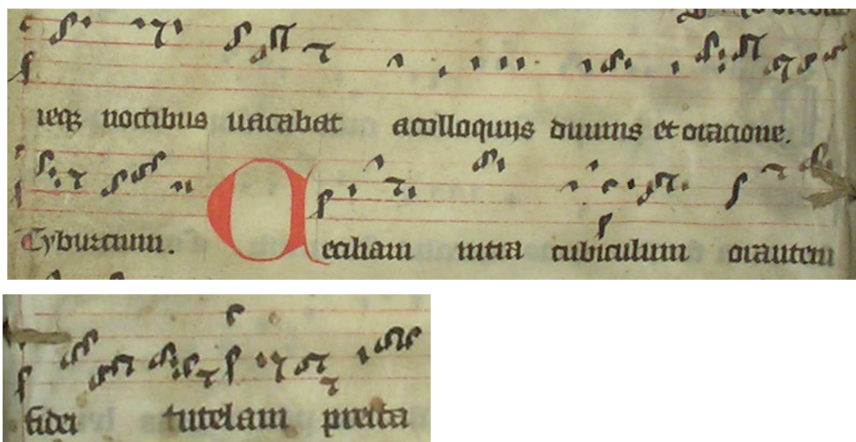 ieqz noctibus uacabat acolloquijs diuinis et oracione.
Tyburcium. Ceciliam intra cubiculum orantem
fidei tutelam preita